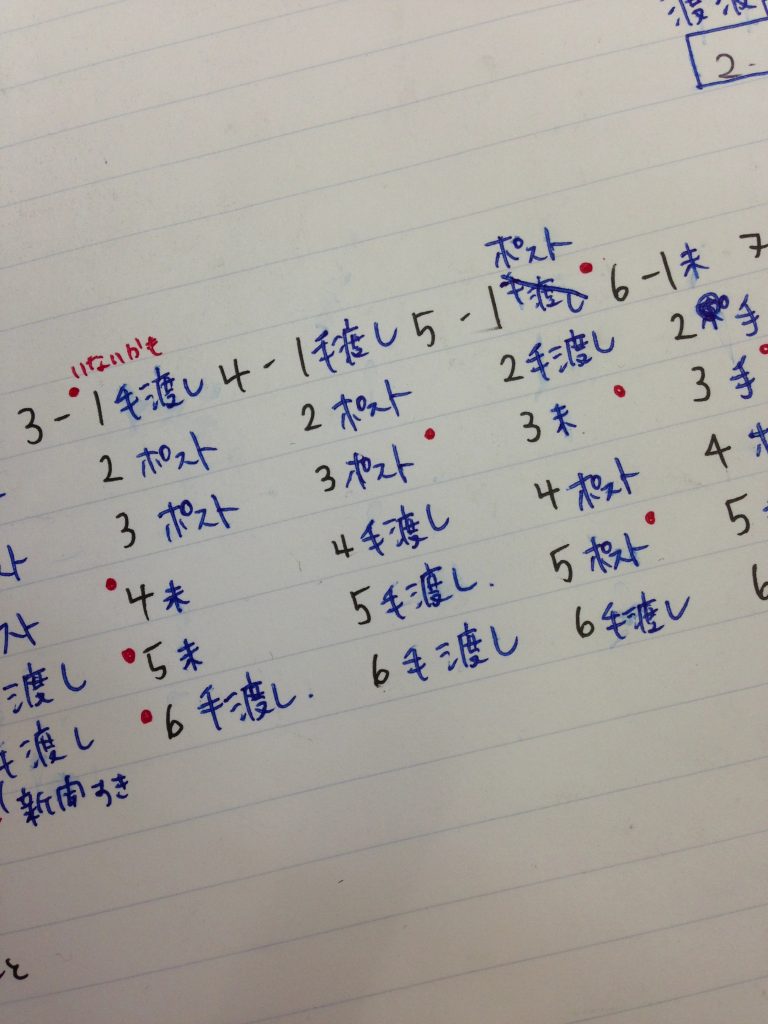 渡渡
2.
ポスト
いないかも
3-1 手渡し 4-1 手渡し 5-1 手渡し 6-1 未 7
2 ポスト 2 ポスト 2 手渡し 2 手
3 ポスト 3 ポスト 3 未 3 手
4 未 4 手渡し 4 ポスト 4
スト 5 未 5 手渡し. 5 ポスト 5
渡し 6 手渡し. 6 手渡し 6 手渡し 6
手渡し
新聞すき
と